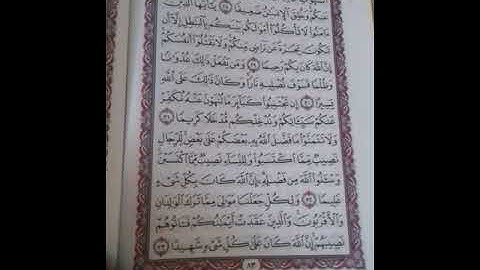 عَنكُمْ وَخُلِقَ ٱلْإِنسَٰنُ ضَعِيفًا ٢٨ يَٰٓأَيُّهَا ٱلَّذِينَ
ءَامَنُوا۟ لَا تَأْكُلُوٓا۟ أَمْوَٰلَكُم بَيْنَكُم بِٱلْبَٰطِلِ إِلَّآ أَن
تَكُونَ تِجَٰرَةً عَن تَرَاضٍ مِّنكُمْ وَلَا تَقْتُلُوٓا۟ أَنفُسَكُمْ
إِنَّ ٱللَّهَ كَانَ بِكُمْ رَحِيمًا ٢٩ وَمَن يَفْعَلْ ذَٰلِكَ عُدْوَٰنًا
وَظُلْمًا فَسَوْفَ نُصْلِيهِ نَارًا وَكَانَ ذَٰلِكَ عَلَى ٱللَّهِ
يَسِيرًا ٣٠ إِن تَجْتَنِبُوا۟ كَبَآئِرَ مَا تُنْهَوْنَ عَنْهُ نُكَفِّرْ
عَنكُمْ سَيِّـَٔاتِكُمْ وَنُدْخِلْكُم مُّدْخَلًا كَرِيمًا ٣١
وَلَا تَتَمَنَّوْا۟ مَا فَضَّلَ ٱللَّهُ بِهِۦ بَعْضَكُمْ عَلَىٰ بَعْضٍ لِّلرِّجَالِ
نَصِيبٌ مِّمَّا ٱكْتَسَبُوا۟ وَلِلنِّسَآءِ نَصِيبٌ مِّمَّا ٱكْتَسَبْنَ
وَسْـَٔلُوا۟ ٱللَّهَ مِن فَضْلِهِۦٓ إِنَّ ٱللَّهَ كَانَ بِكُلِّ شَىْءٍ
عَلِيمًا ٣٢ وَلِكُلٍّ جَعَلْنَا مَوَٰلِىَ مِمَّا تَرَكَ ٱلْوَٰلِدَانِ
وَٱلْأَقْرَبُونَ وَٱلَّذِينَ عَقَدَتْ أَيْمَٰنُكُمْ فَـَٔاتُوهُمْ
نَصِيبَهُمْ إِنَّ ٱللَّهَ كَانَ عَلَىٰ كُلِّ شَىْءٍ شَهِيدًا ٣٣
٨٣